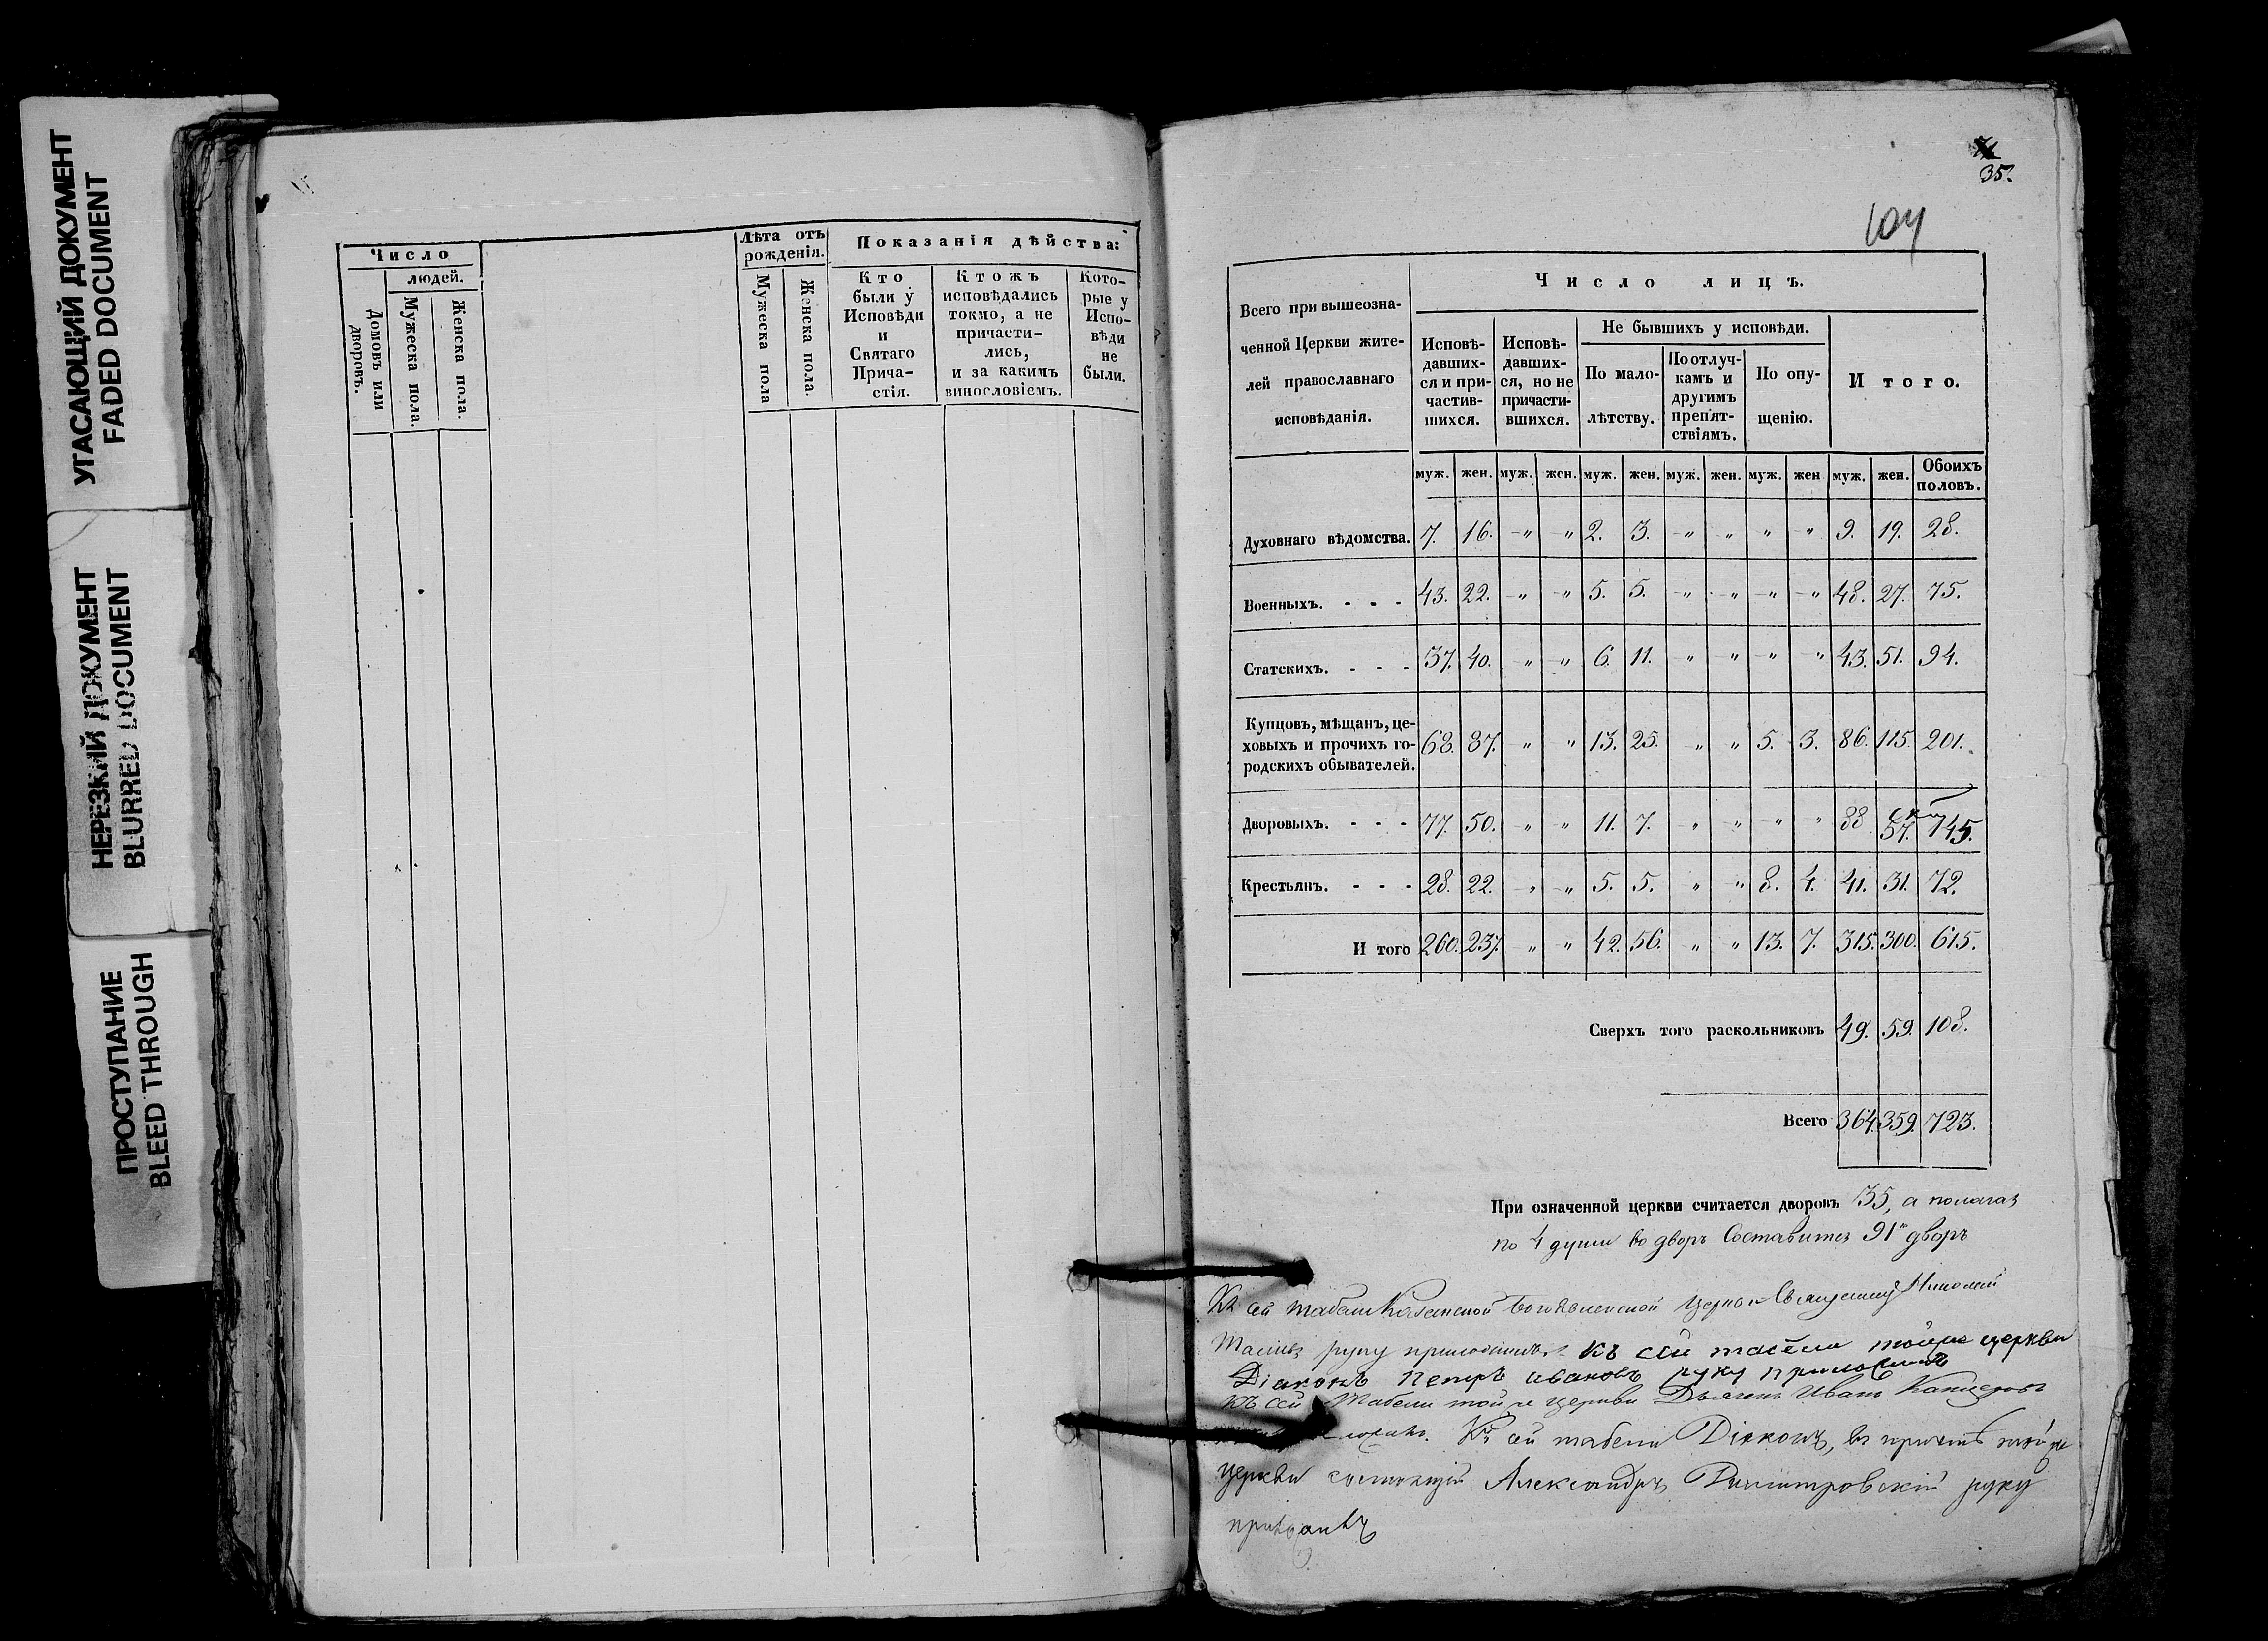 УГАСАЮЩИЙ ДОКУМЕНТ
FADED DOCUMENT
НЕРЕЗКИЙ ДОКУМЕНТ
BLURRED DOCUMENT
ПРОСТУПАНИЕ
BLEED THROUGH
Число
людей.
Домовъ или дворовъ.
Мужеска пола.
Женска пола.
Лѣта отъ рожденія.
Мужеска пола
Женска пола.
Показанія дѣйства:
Кто
были у
Исповѣди
и
Святаго
Прича-
стія.
Ктожъ
исповѣдались
токмо, а не
причасти-
лись,
и за какимъ
винословіемъ.
Кото-
рые у
Испо-
вѣди
не
были.
35.
104
Всего при вышеозна-
ченной Церкви жите-
лей православнаго
исповѣданія.
Число лицъ.
Исповѣ-
давших-
ся и при-
частив-
шихся.
Исповѣ-
давших-
ся, но не
причасти-
вшихся.
Не бывшихъ у исповѣди.
По мало-
лѣтству.
По отлуч-
камъ и
другимъ
препят-
ствіямъ.
По опу-
щенію.
Итого.
муж. жен. муж. жен. муж. жен. муж. жен. муж. жен муж. жен. Обоихъ половъ.
Духовнаго вѣдомства. 7. 16. " " 2. 3. " " " " 9. 19. 28.
Военныхъ. - - - 43. 22. " " 5. 5. " " " " 48. 27. 75.
Статскихъ. - - - 37. 40. " " 6. 11. " " " " 43. 51. 94.
Купцовъ, мѣщанъ, це-
ховыхъ и прочихъ го-
родскихъ обывателей. 68. 87. " " 13. 25. " " 5. 3. 86. 115. 201.
Дворовыхъ. - - - 77. 50. " " 11. 7. " " " " 88 57. 145.
Крестьянъ. - - - 28. 22. " " 5. 5. " " 8. 4. 41. 31. 72.
И того 260. 237. " " 42. 56. " " 13. 7. 315. 300. 615.
Сверхъ того раскольниковъ 49. 59. 108.
Всего 364. 359. 723.
При означенной церкви считается дворовъ 35, а полагая
по 4 души во дворъ составится 91 дворъ
Къ сей табели Казанской Богоявленской церкви Священникъ Николай
руку приложилъ. Къ сей табели тойже церкви
Діаконъ Петръ Ивановъ руку приложилъ
Къ сей табели той же церкви Дьячекъ Иванъ
Къ сей табели Діаконъ, въ причтѣ той же
церкви состоящій Александръ Димитровскій руку
приложилъ